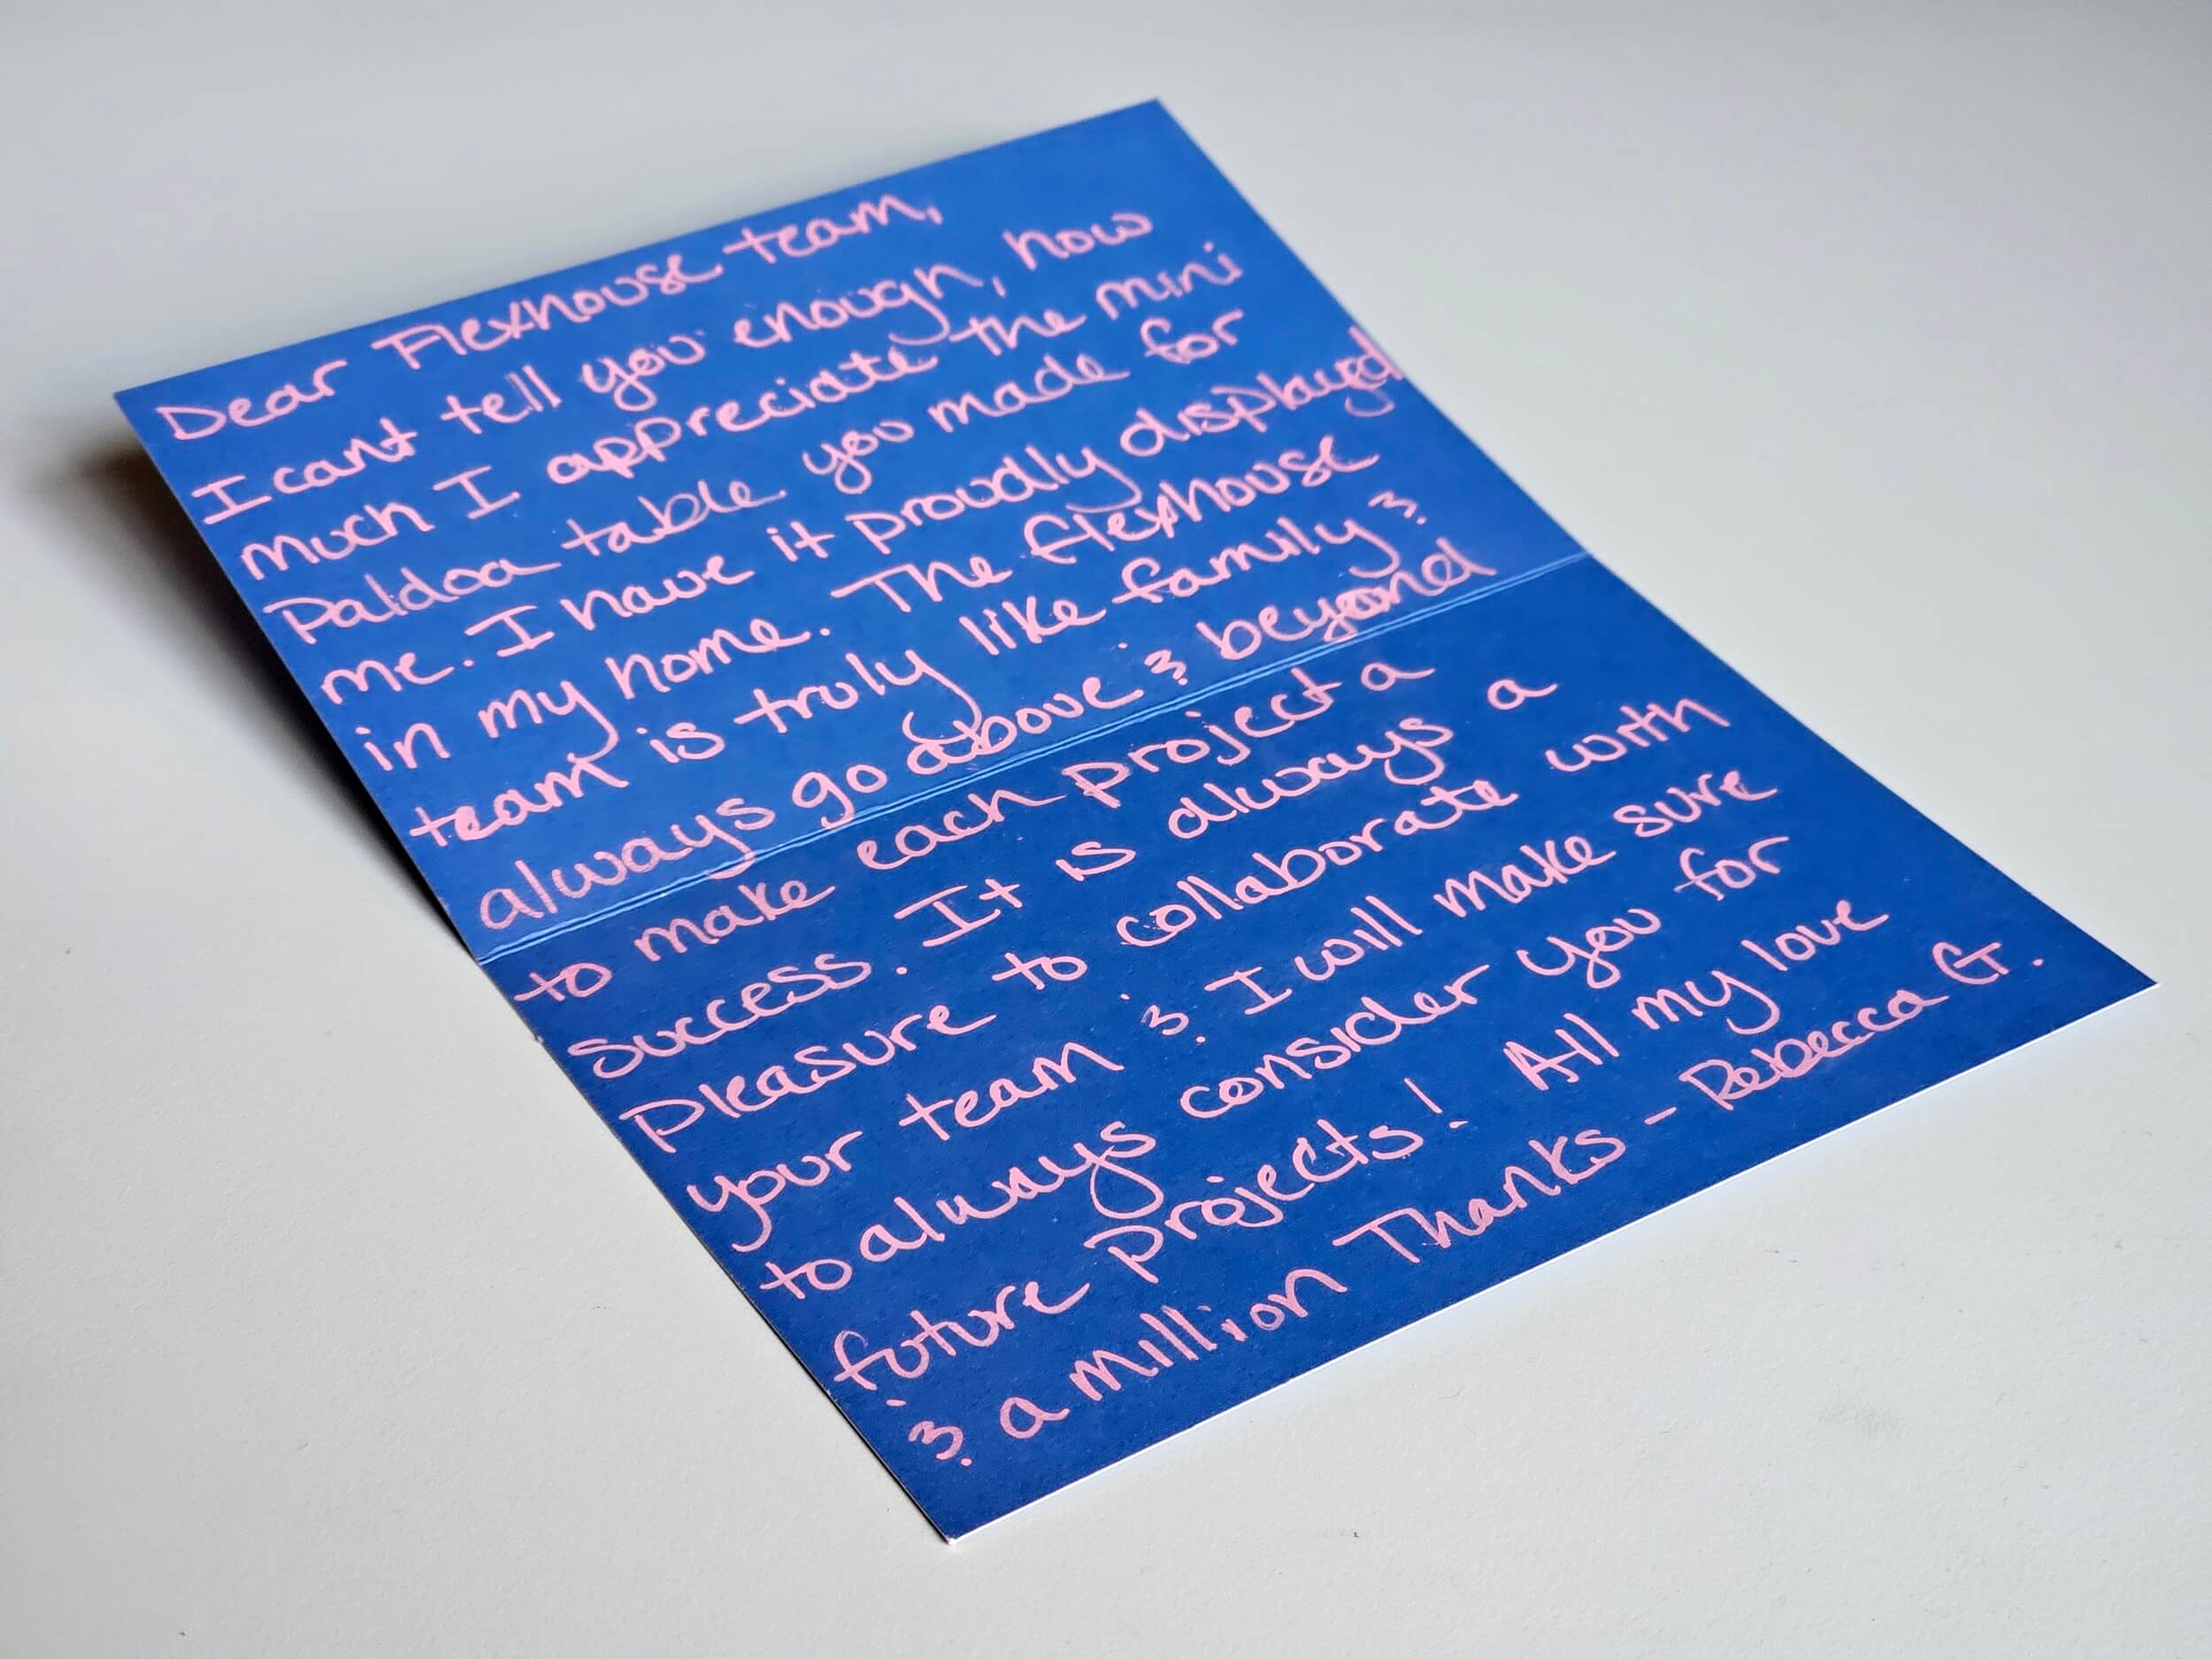 Dear Flexhouse team,
I cant tell you enough, how
much I appreciate the mini
Paldoa table you made for
me. I have it proudly displayed
in my home. The Flexhouse
team is truly like family &
always go above & beyond
to make each project a
success. It is always a
pleasure to collaborate with
your team & I will make sure
to always consider you for
future projects! All my love
& a million Thanks - Rebecca G.